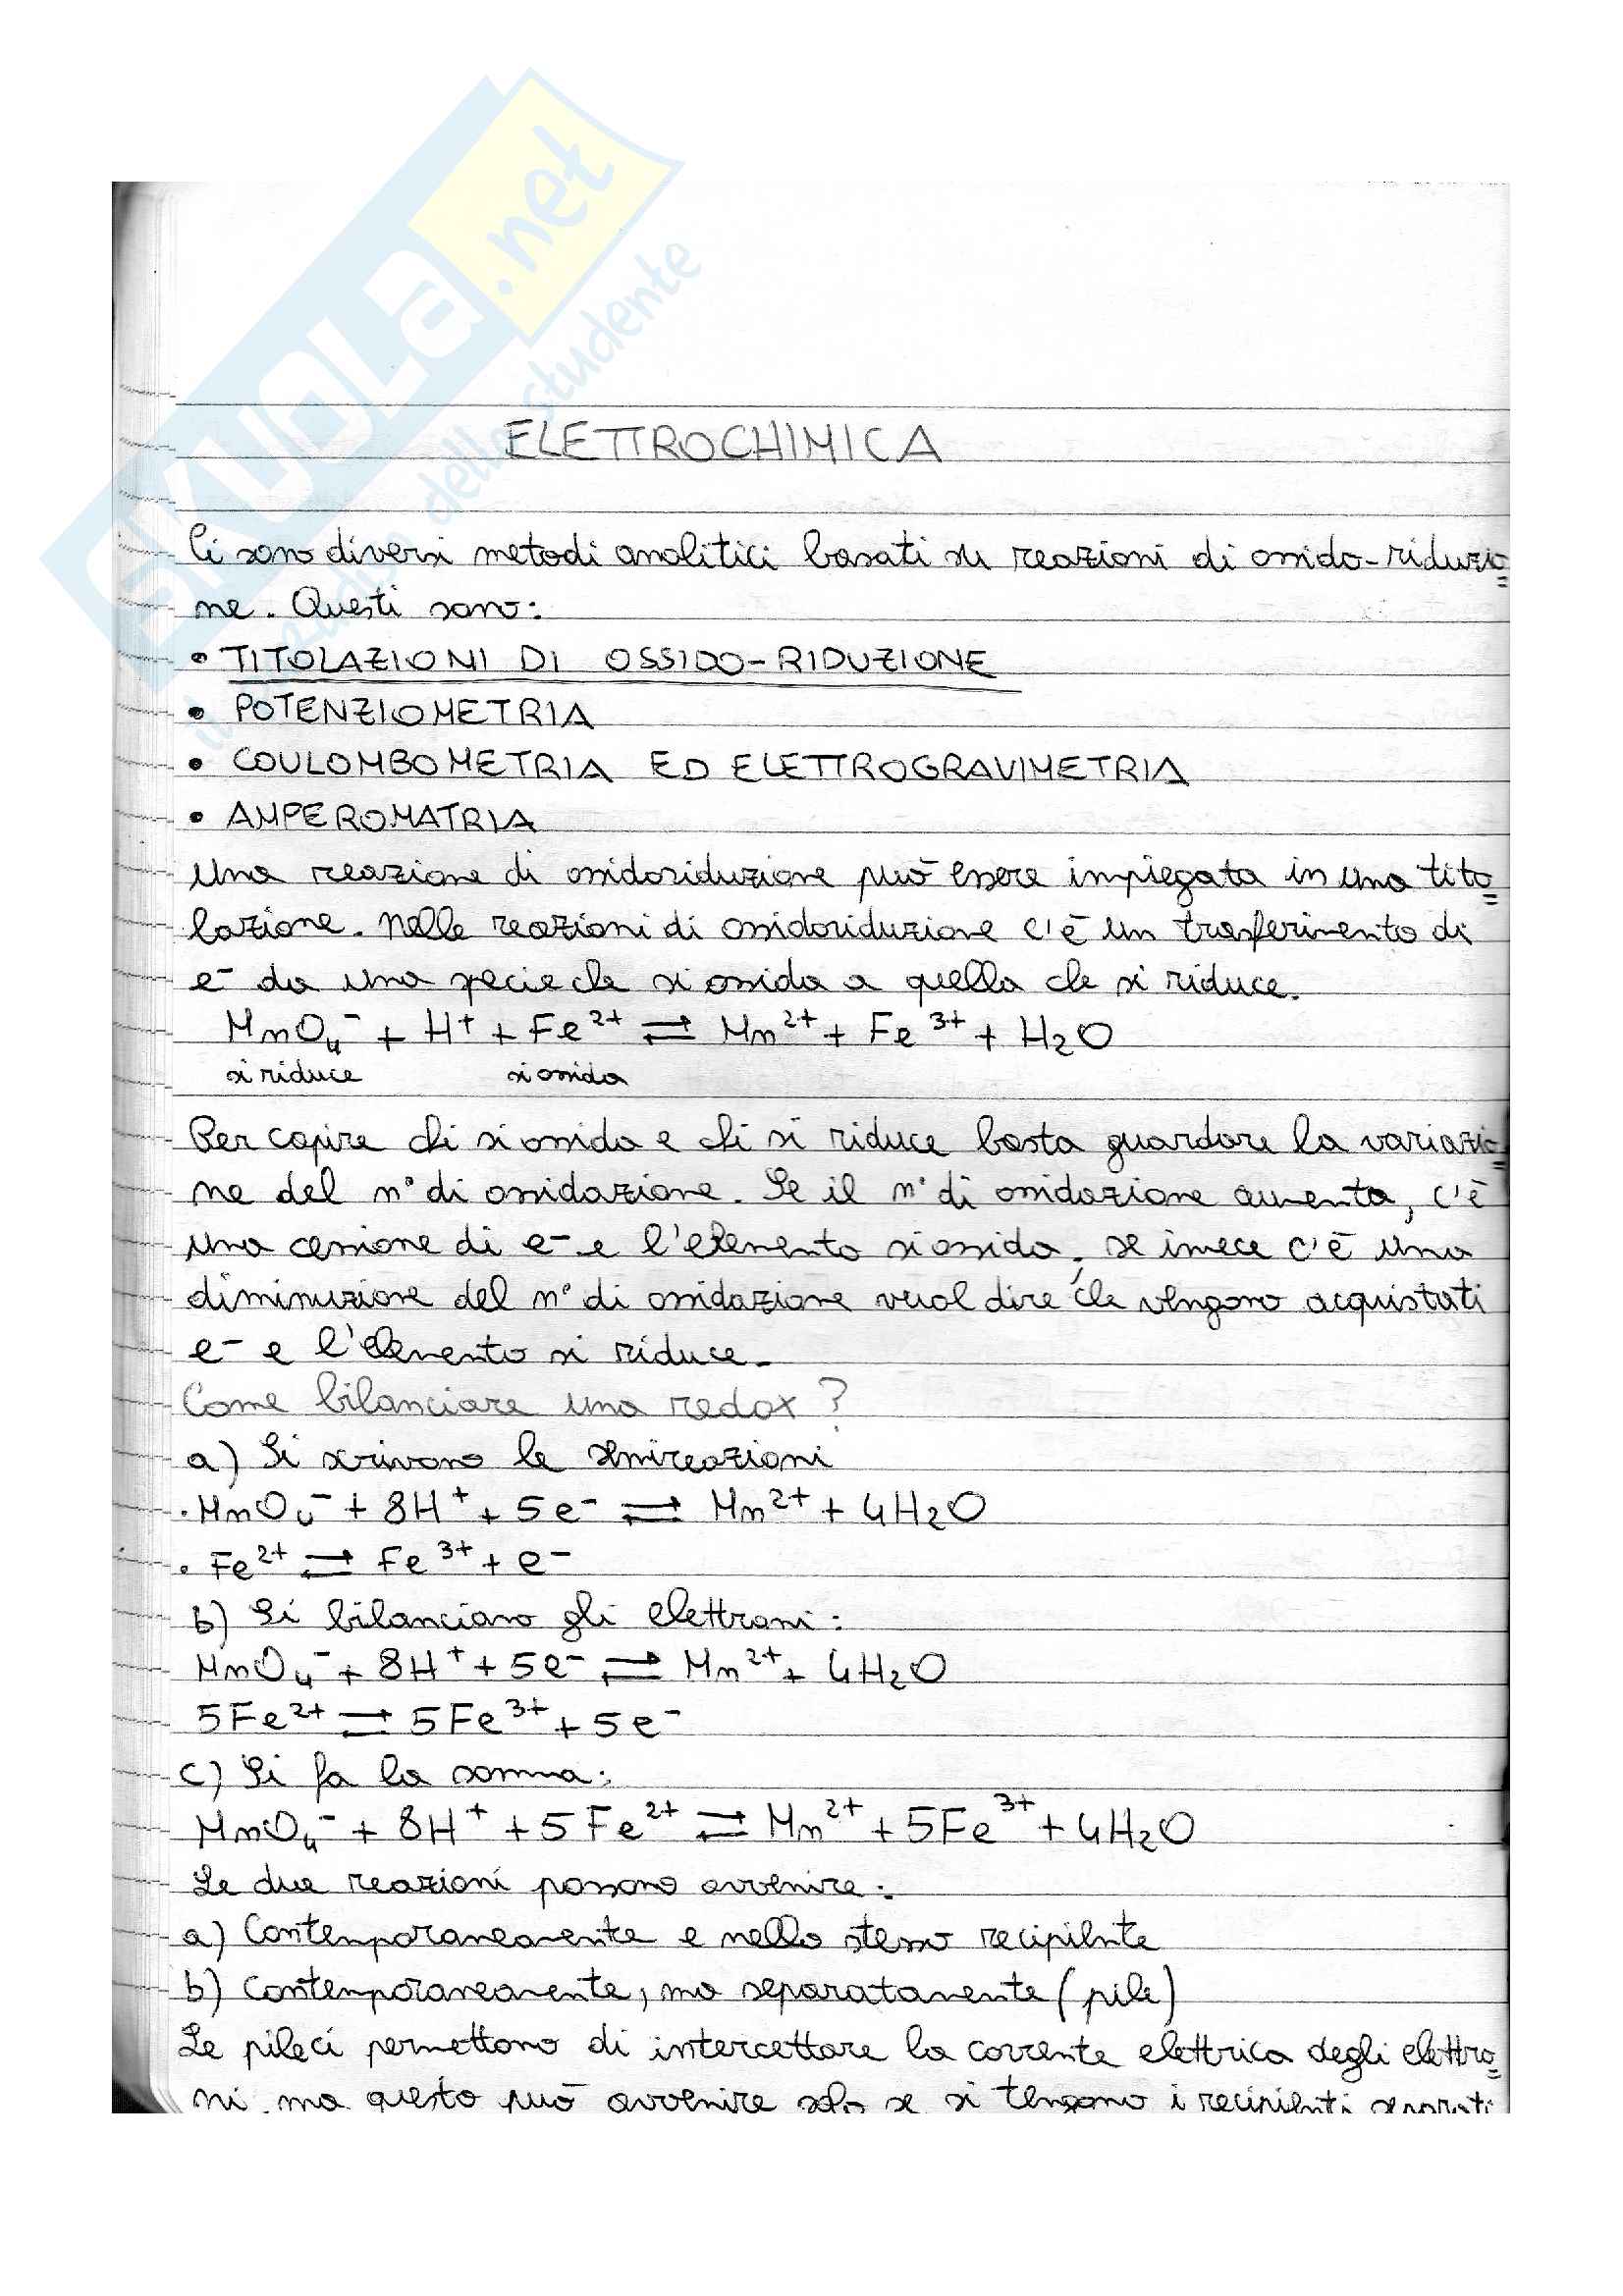 SKUOLA.net
il paradiso dello studente
ELETTROCHIMICA
Ci sono diversi metodi analitici basati su reazioni di ossido-riduzio=
ne. Questi sono:
• TITOLAZIONI DI OSSIDO-RIDUZIONE
• POTENZIOMETRIA
• COULOMBOMETRIA ED ELETTROGRAVIMETRIA
• AMPEROMATRIA
Una reazione di ossidoriduzione può essere impiegata in una tito=
lazione. Nelle reazioni di ossidoriduzione c'è un trasferimento di
e⁻ da una specie che si ossida a quella che si riduce.
MnO₄⁻ + H⁺ + Fe²⁺ ⇄ Mn²⁺ + Fe³⁺ + H₂O
si riduce si ossida
Per capire chi si ossida e chi si riduce basta guardare la variazio=
ne del n° di ossidazione. Se il n° di ossidazione aumenta, c'è
una cessione di e⁻ e l'elemento si ossida; se invece c'è una
diminuzione del n° di ossidazione vuol dire che vengono acquistati
e⁻ e l'elemento si riduce.
Come bilanciare una redox?
a) Si scrivono le semireazioni
• MnO₄⁻ + 8H⁺ + 5e⁻ ⇄ Mn²⁺ + 4H₂O
• Fe²⁺ ⇄ Fe³⁺ + e⁻
b) Si bilanciano gli elettroni:
MnO₄⁻ + 8H⁺ + 5e⁻ ⇄ Mn²⁺ + 4H₂O
5Fe²⁺ ⇄ 5Fe³⁺ + 5e⁻
c) Si fa la somma:
MnO₄⁻ + 8H⁺ + 5Fe²⁺ ⇄ Mn²⁺ + 5Fe³⁺ + 4H₂O
Le due reazioni possono avvenire:
a) Contemporaneamente e nello stesso recipiente
b) Contemporaneamente, ma separatamente (pile)
Le pile ci permettono di intercettare la corrente elettrica degli elettro=
ni, ma questo può avvenire solo se si tengono i recipienti separati